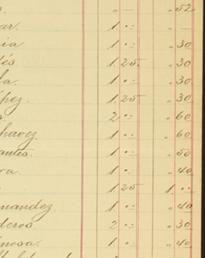 .. .52
ar. 1 "
ia 1 " .30
tés 1 25 .30
la. 1 " .30
ópez. 1 25 .30
2 " .60
Chavez 1 " .60
antes. 1 " .50
ra. 1 " .40
1 25 1 "
rnandez 1 " .40
deros 2 " .30
inosa. 1 " .40